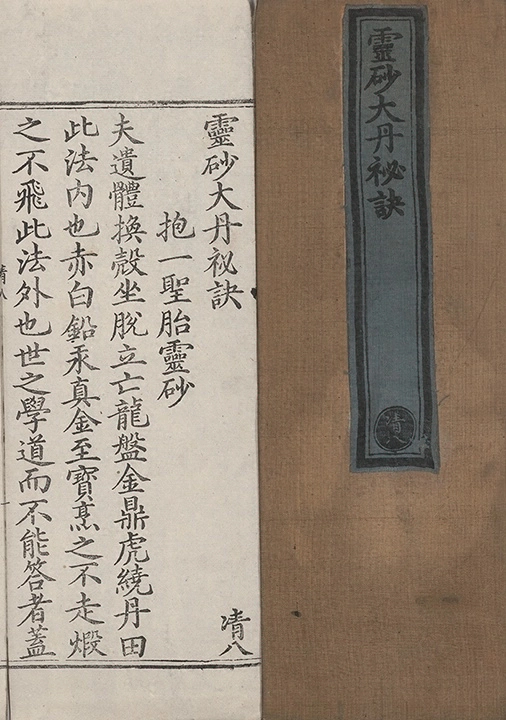 靈砂大丹祕訣
凊八
靈砂大丹祕訣
凊八
抱一聖胎靈砂
夫遺體換殼坐脫立亡龍盤金鼎虎繞丹田
此法內也赤白鉛汞真金至寶烹之不走煅
之不飛此法外也世之學道而不能答者蓋